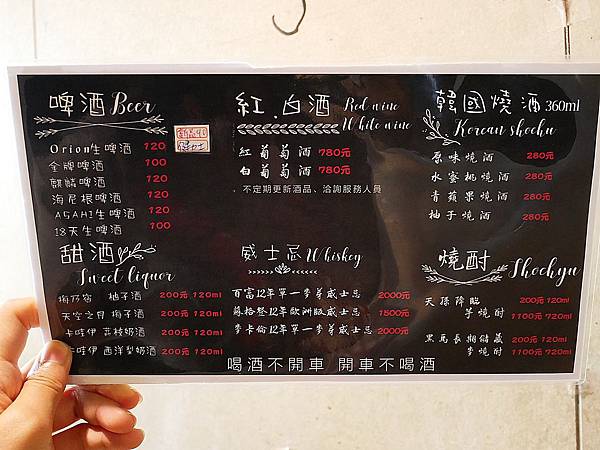 啤酒 Beer
Orion生啤酒 120
金牌啤酒 100
麒麟啤酒 120
海尼根啤酒 120
ASAHI生啤酒 120
18天生啤酒 100
紅.白酒 Red wine
White wine
紅葡萄酒 780元
白葡萄酒 780元
不定期更新酒品、洽詢服務人員
韓國燒酒 360ml
Korean shochu
原味燒酒 280元
水蜜桃燒酒 280元
青蘋果燒酒 280元
柚子燒酒 280元
甜酒
Sweet liquor
梅乃宿 柚子酒 200元 120ml
天空之月 梅子酒 200元 120ml
卡哇伊 荔枝奶酒 200元 120ml
卡哇伊 西洋梨奶酒 200元 120ml
威士忌 Whiskey
百富12年單一麥芽威士忌 2000元
蘇格登12年歐洲版威士忌 1500元
麥卡倫12年單一麥芽威士忌 2000元
燒酎 Shochyu
天孫降臨 200元 120ml
芋燒酎 1100元 720ml
黑馬長期儲藏 200元 120ml
麥燒酎 1100元 720ml
喝酒不開車 開車不喝酒